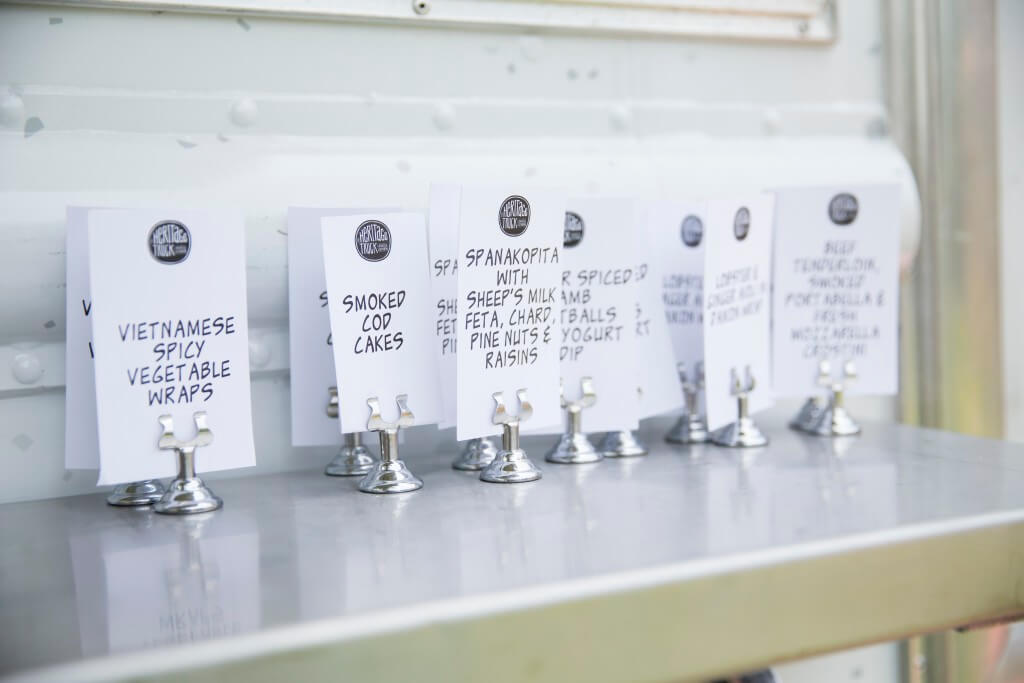 HERITAGE
TRUCK
VIETNAMESE
SPICY
VEGETABLE
WRAPS
HERITAGE
TRUCK
SMOKED
COD
CAKES
HERITAGE
TRUCK
SPANAKOPITA
WITH
SHEEP'S MILK
FETA, CHARD,
PINE NUTS &
RAISINS
R SPICED
AMB
TBALLS
YOGURT
DIP
LOBSTER &
BEEF
TENDERLOIN,
SMOKED
PORTABELLA &
FRESH
MOZZARELLA
CROSTINI